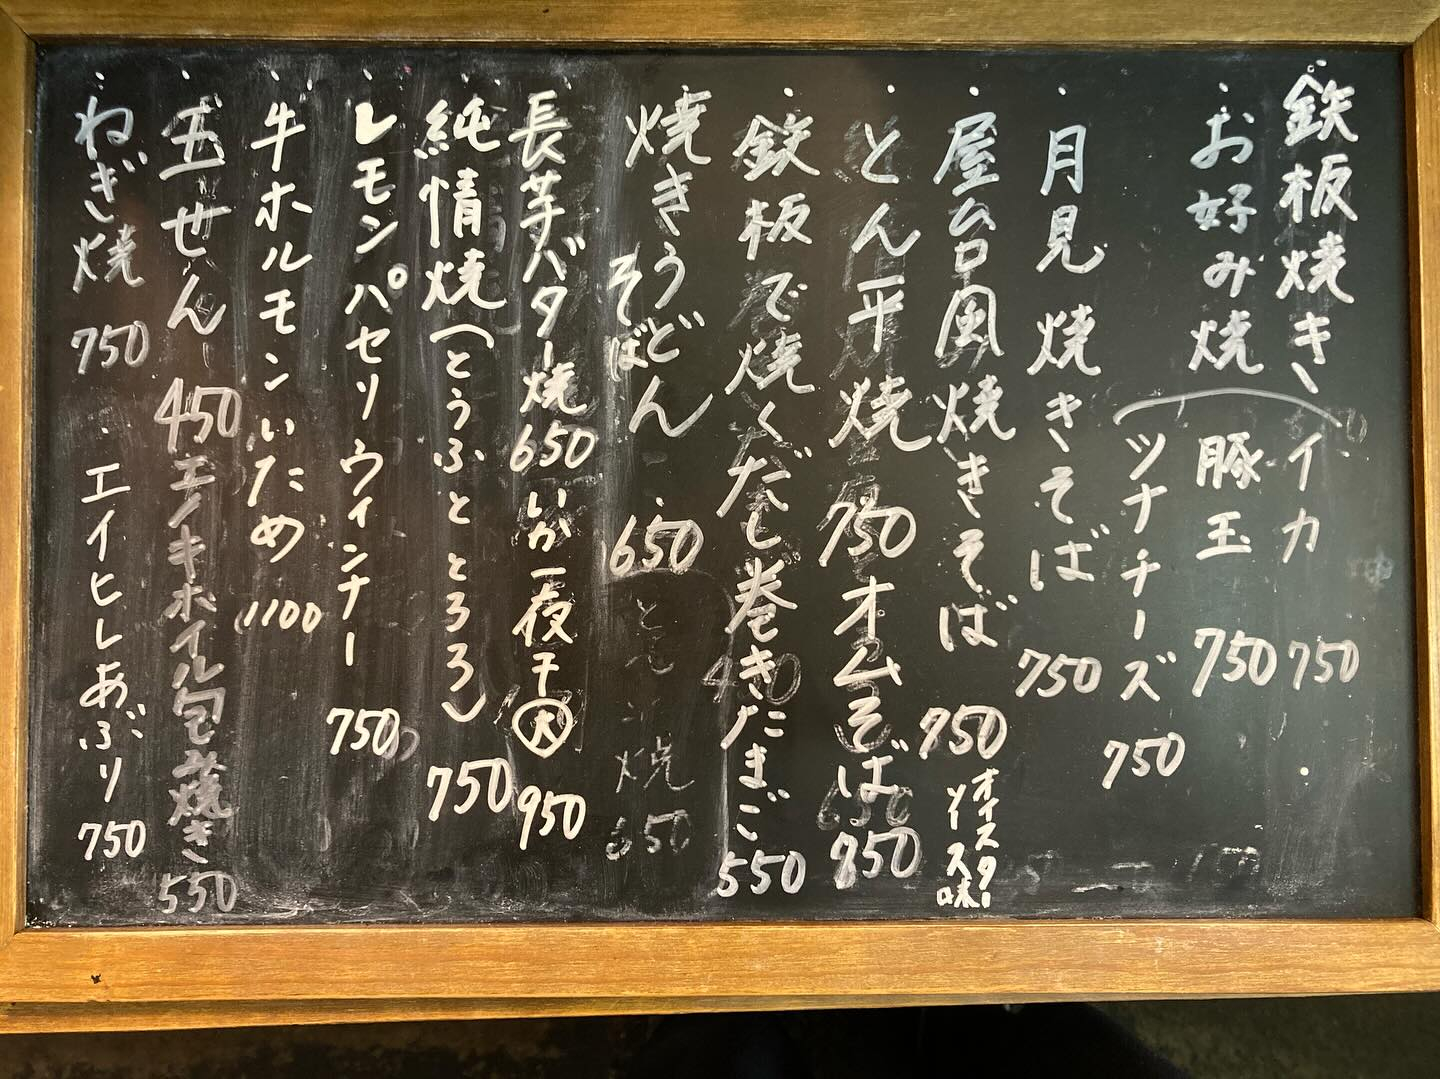 ・鉄板焼き
・お好み焼
イカ 750
豚玉 750
ツナチーズ 750
・月見焼きそば 750
・屋台風焼きそば 750
オイスターソース味
・とん平焼 750
オムそば 850
・鉄板で焼くだし巻きたまご 550
・焼きうどん
そば
・650
・長芋バター焼 650
いか一夜干 大 950
・純情焼(とうふととろろ) 750
・レモンパセリウィンナー 750
・牛ホルモンいため 1100
・玉せん 450
エノキホイル包み焼き 550
・ねぎ焼 750
・エイヒレあぶり 750